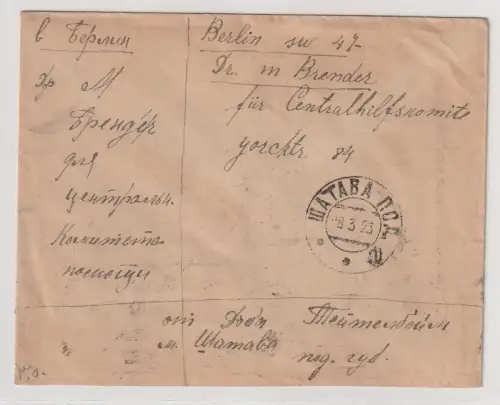 в Берлин
Др М
Брендер
для
центральн.
Комитета
помощи
Berlin sw 47-
Dr. m Brender
für Centralhilfskomite
yorckstr 84
ШАТАВА ПОД
8 3 23
от Тейтельбойм
м. Шатава под. губ.